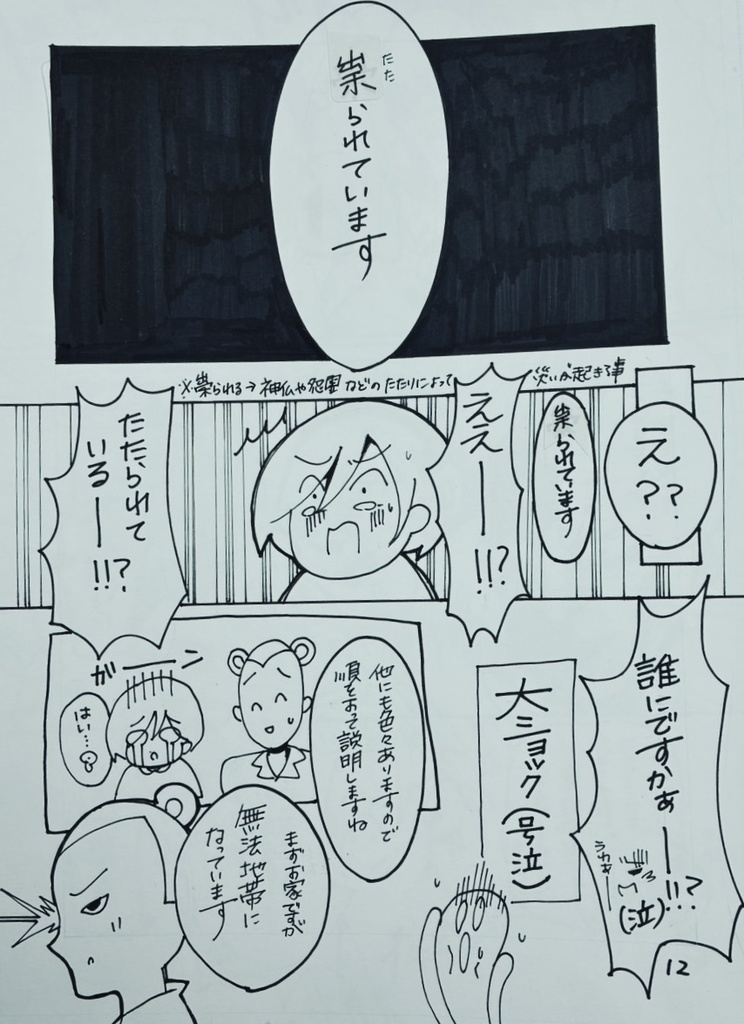 祟られています
たた
※祟られる→神仏や怨霊などのたたりによって災いが起きる事
え??
祟られています
ええー!!?
たたられて
いるー!!?
誰にですかぁー!!?
うわぁー
(泣)
大ショック(号泣)
他にも色々ありますので
順をおって説明しますね
がーン
はい…
まずお家ですが
無法地帯に
なっています
12